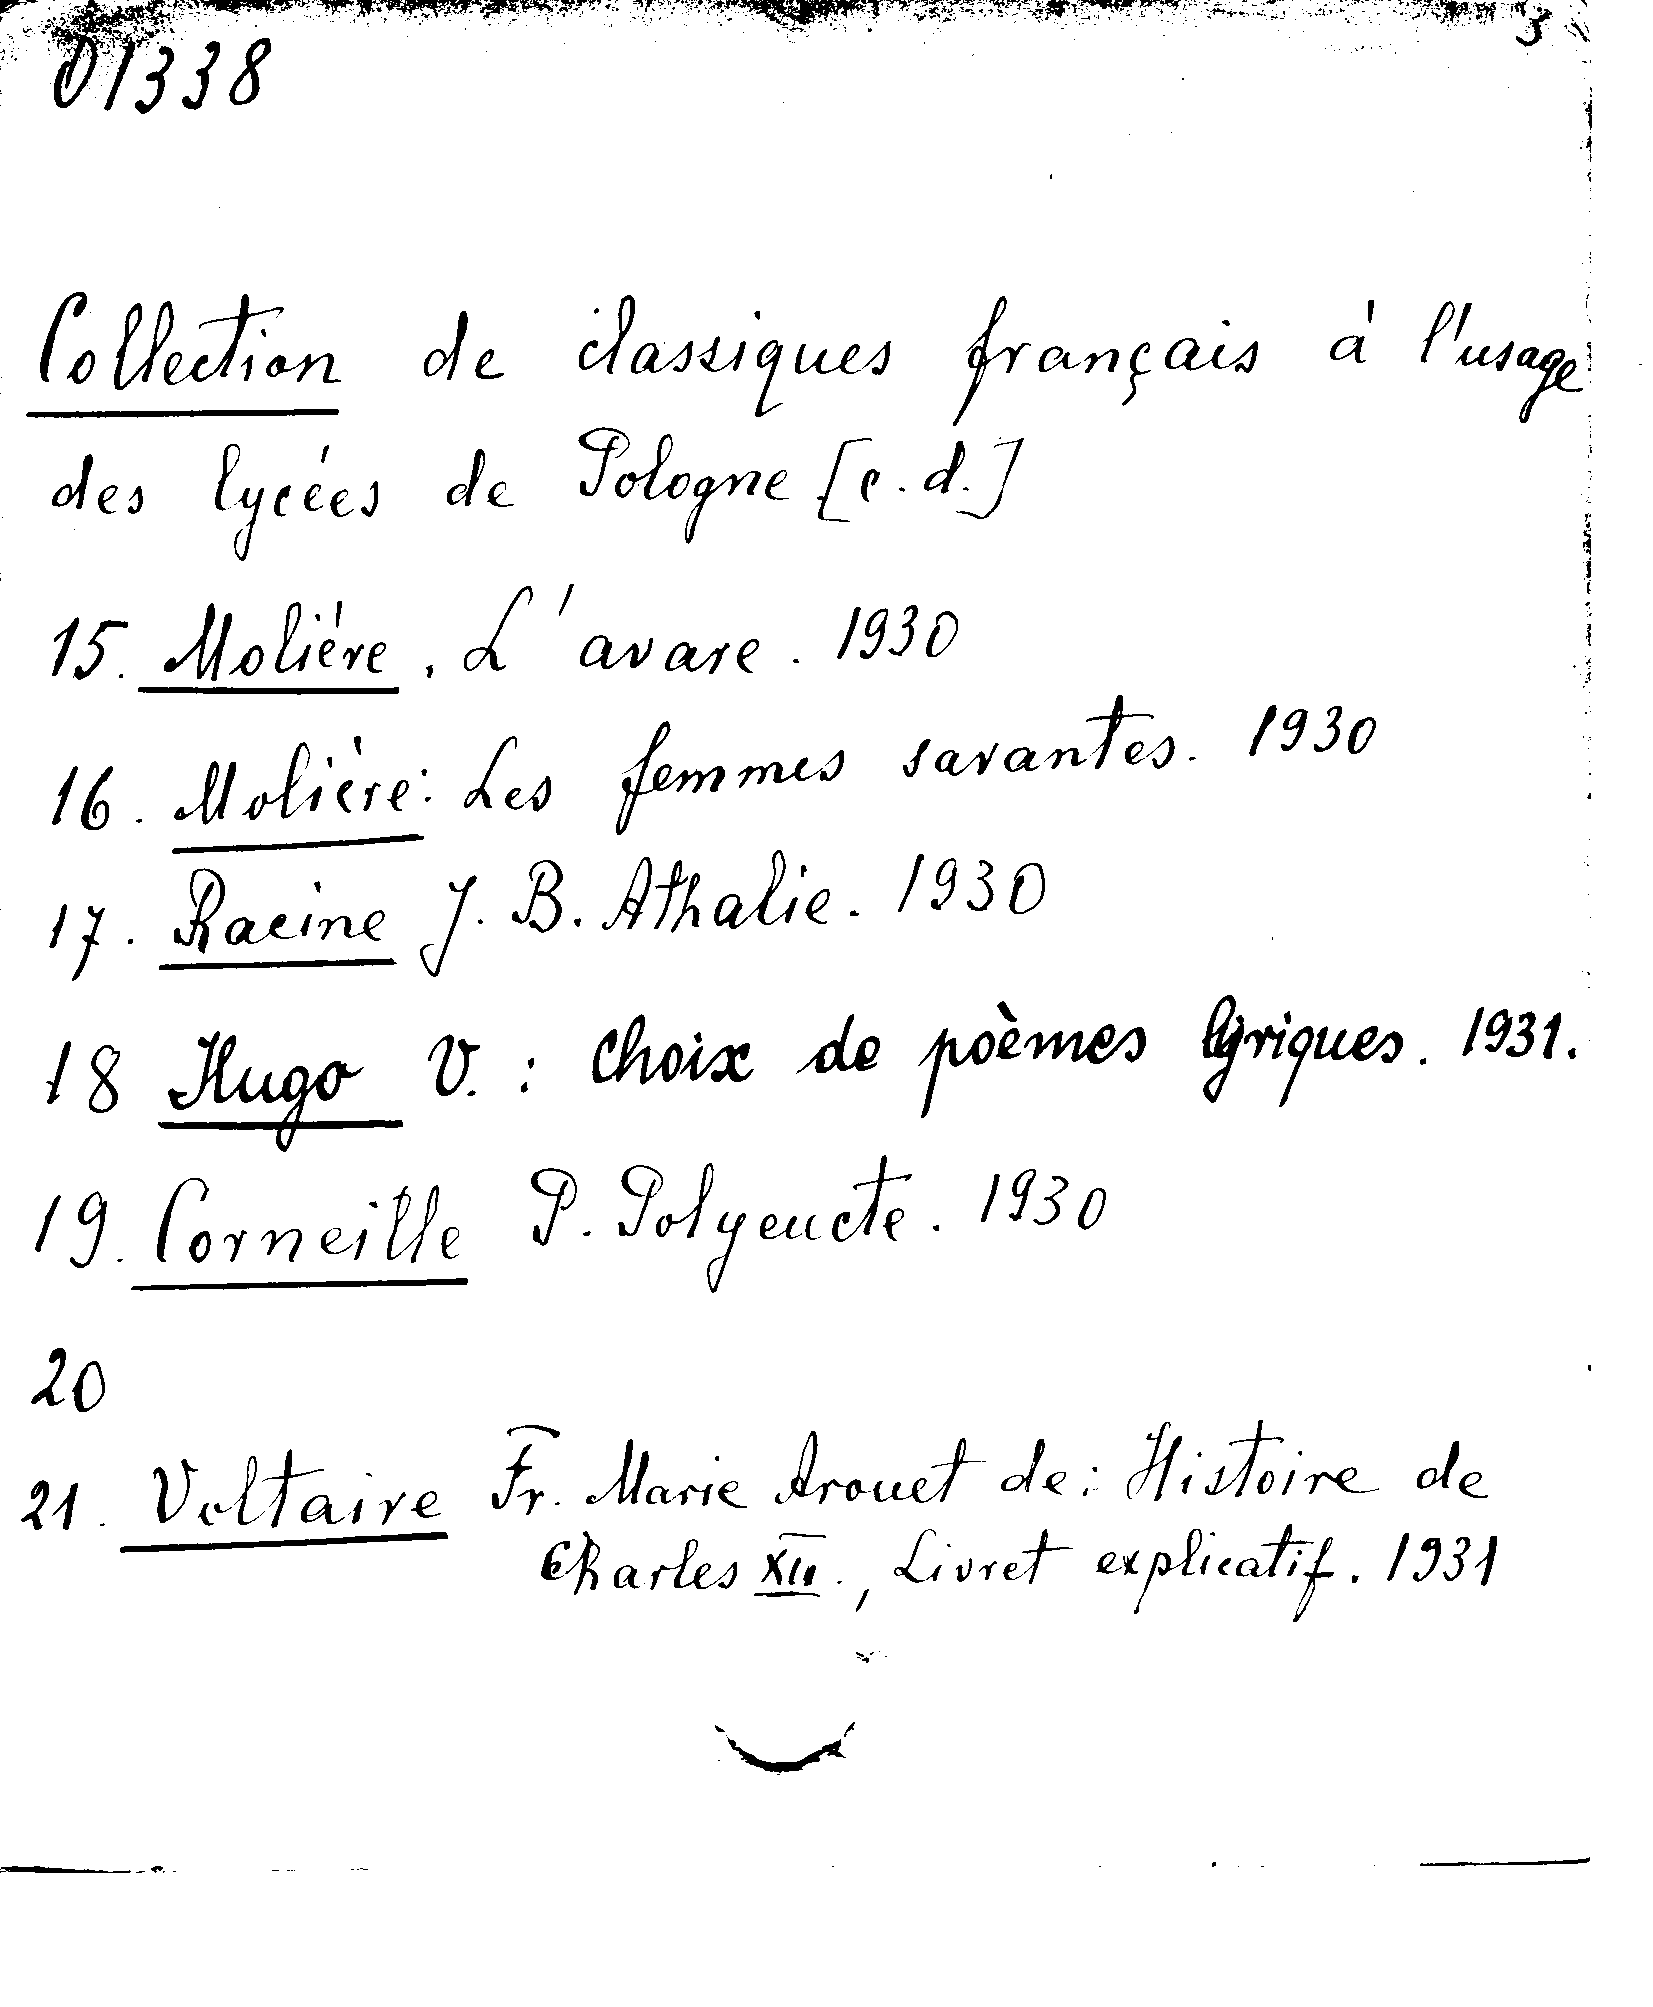 3
01338
Collection de classiques français à l'usage
des lycées de Pologne [c.d.]
15. Molière. L'avare. 1930
16. Molière: Les femmes savantes. 1930
17. Racine J. B. Athalie. 1930
18 Hugo V.: Choix de poèmes lyriques. 1931.
19. Corneille P. Polyeucte. 1930
20
21. Voltaire Fr. Marie Arouet de: Histoire de
Charles XII., Livret explicatif. 1931